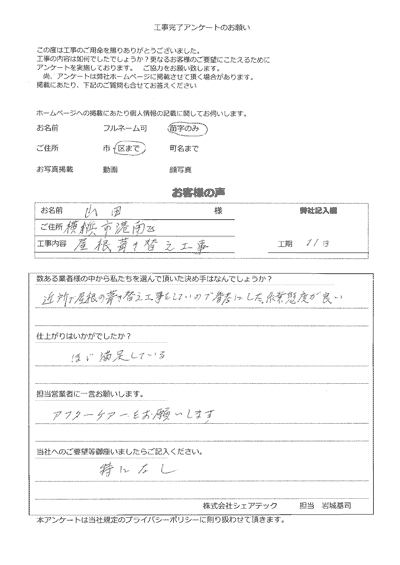 工事完了アンケートのお願い
この度は工事のご用命を賜りありがとうございました。
工事の内容は如何でしたでしょうか?更なるお客様のご要望にこたえるために
アンケートを実施しております。 ご協力をお願い致します。
尚、アンケートは弊社ホームページに掲載させて頂く場合があります。
掲載にあたり、下記のご質問も合せてお答えください
ホームページへの掲載にあたり個人情報の記載に関してお伺いします。
お名前 フルネーム可 苗字のみ
ご住所 市・区まで 町名まで
お写真掲載 動画 顔写真
お客様の声
お名前 山田 様 弊社記入欄
ご住所 横浜市港南区
工事内容 屋根葺き替え工事 工期 11日
数ある業者様の中から私たちを選んで頂いた決め手はなんでしょうか?
近所で屋根の葺き替え工事をしていので参考にした。営業態度が良い
仕上がりはいかがでしたか?
ほぼ満足している
担当営業者に一言お願いします。
アフターケアーをお願いします
当社へのご要望等御座いましたらご記入ください。
特になし
株式会社シェアテック 担当 岩城基司
本アンケートは当社規定のプライバシーポリシーに則り扱わせて頂きます。